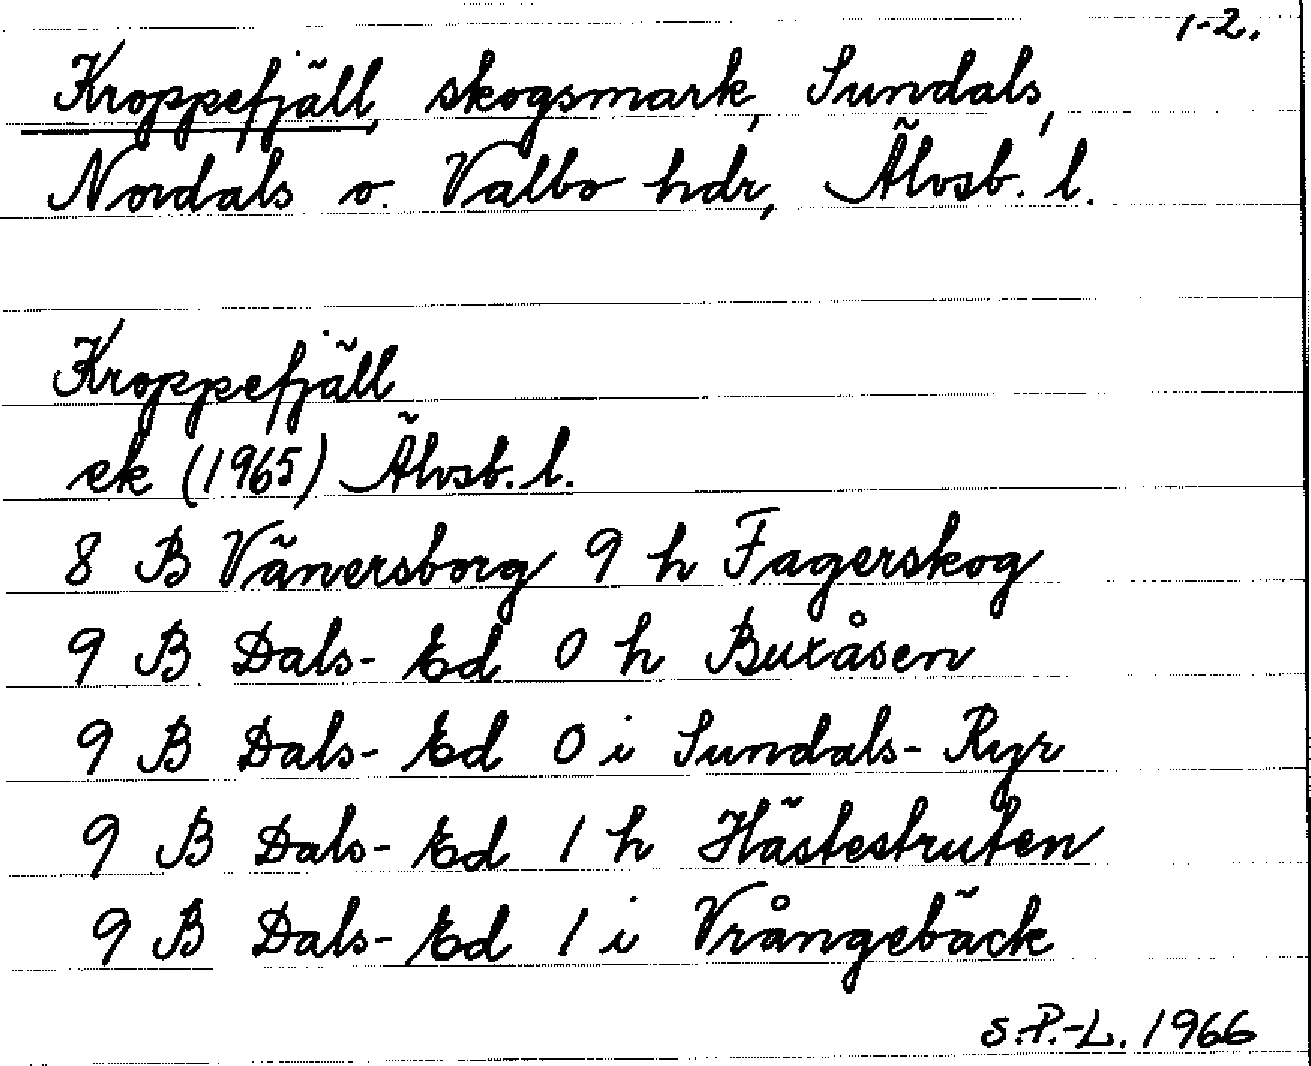 1-2.
Kroppefjäll, skogsmark, Sundals,
Nordals o. Valbo hdr, Älvsb. l.
Kroppefjäll
ek (1965) Älvsb. l.
8 B Vänersborg 9 h Fagerskog
9 B Dals-Ed 0 h Buxåsen
9 B Dals-Ed 0 i Sundals-Ryr
9 B Dals-Ed 1 h Hästestruten
9 B Dals-Ed 1 i Vrångebäck
S.P.-L. 1966